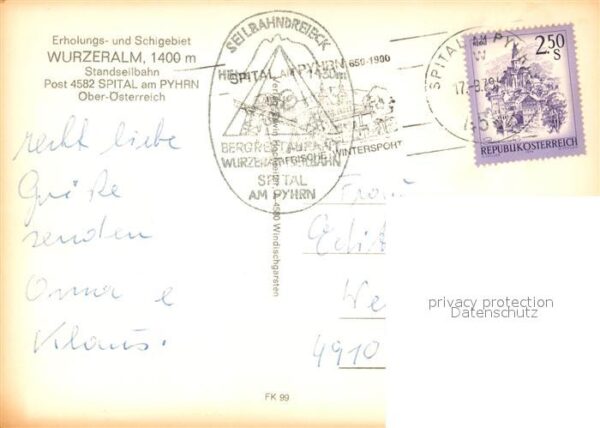 Erholungs- und Schigebiet
WURZERALM, 1400 m
Standseilbahn
Post 4582 SPITAL am PYHRN
Ober-Österreich
recht liebe
Grüße
senden
Oma e
Klaus.
SEILBAHNDREIECK
SPITAL AM PYHRN 650-1900
1430m
BERGRESTAURANT
FRISCHE WINTERSPORT
WURZERALM SEILBAHN
SPITAL
AM PYHRN
4580 Windischgarsten
SPITAL AM PYHRN
17.-8.79
2.50
S
REPUBLIK ÖSTERREICH
Frau
Edit
We
4910
privacy protection
Datenschutz
FK 99